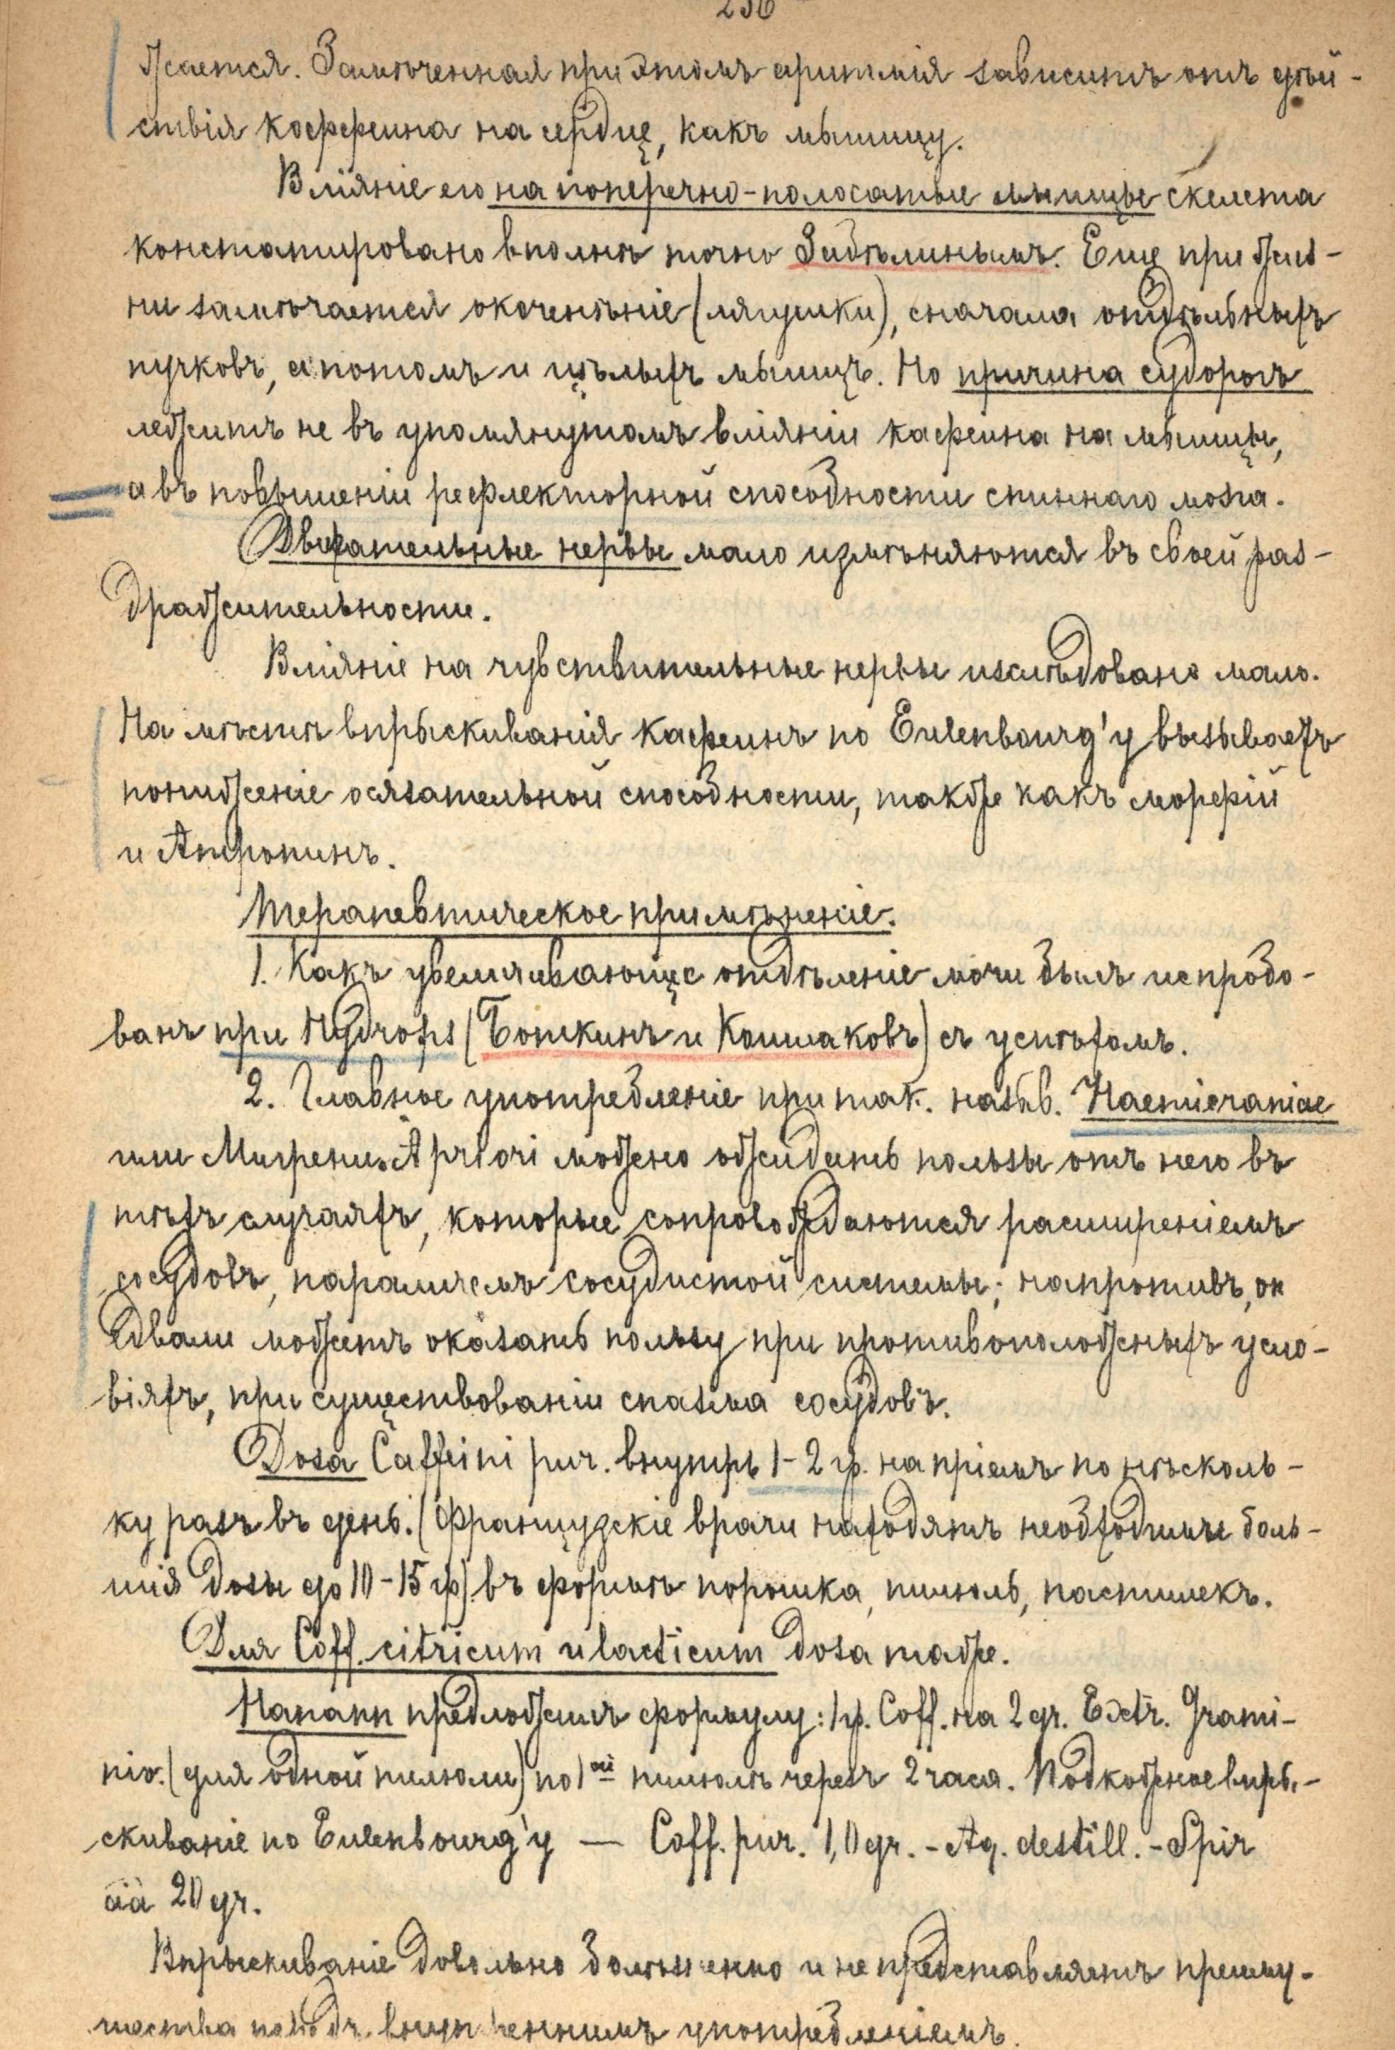 236
жается. Замѣченная при этомъ аритмія зависитъ отъ дѣй-
ствія кофеина на сердце, какъ мышцу.
Вліяніе его на поперечно-полосатые мышцы скелета
констатировано вполнѣ точно Забѣлинымъ. Еще при жиз-
ни замѣчается окоченѣніе (лягушки), сначала отдѣльныхъ
пучковъ, а потомъ и цѣлыхъ мышцъ. Но причина судорогъ
лежитъ не въ упомянутомъ вліяніи кафеина на мышцы,
а въ повышеніи рефлекторной способности спиннаго мозга.
Двигательные нервы мало измѣняются въ своей раз-
дражительности.
Вліяніе на чувствительные нервы изслѣдовано мало.
На мѣстѣ впрыскиванія кафеинъ по Eulenbourg'у вызываетъ
пониженіе осязательной способности, также какъ морфій
и Атропинъ.
Терапевтическое примѣненіе.
1. Какъ увеличивающее отдѣленіе мочи былъ испробо-
ванъ при Hydrops (Боткинъ и Кошлаковъ) съ успѣхомъ.
2. Главное употребленіе при так. назыв. Haemicraniae
или Мигрени. A priori можно ожидать пользы отъ него въ
тѣхъ случаяхъ, которые сопровождаются расширеніемъ
сосудовъ, параличемъ сосудистой системы; напротивъ, он
едвали можетъ оказать пользу при противоположныхъ усло-
віяхъ, при существованіи спазма сосудовъ.
Доза Caffeini pur. внутрь 1-2 гр. на пріемъ по нѣсколь-
ку разъ въ день. (Французскіе врачи находятъ необходимые боль-
шія дозы до 10-15 гр) въ формѣ порошка, пилюль, пастилекъ.
Для Coff. citricum и lacticum доза таже.
Напапп предложилъ формулу: 1 гр. Coff. на 2 gr. Extr. Grami-
niv. (для одной пилюли) по 1ой пилюлѣ черезъ 2 часа. Подкожное впры-
скиваніе по Eulenbourg'у — Coff. pur. 1,0 gr. - Aq. destill. - Spir
aa 20 gr.
Впрыскиваніе довольно болѣзненно и не представляетъ преиму-
щества передъ внутреннимъ употребленіемъ.